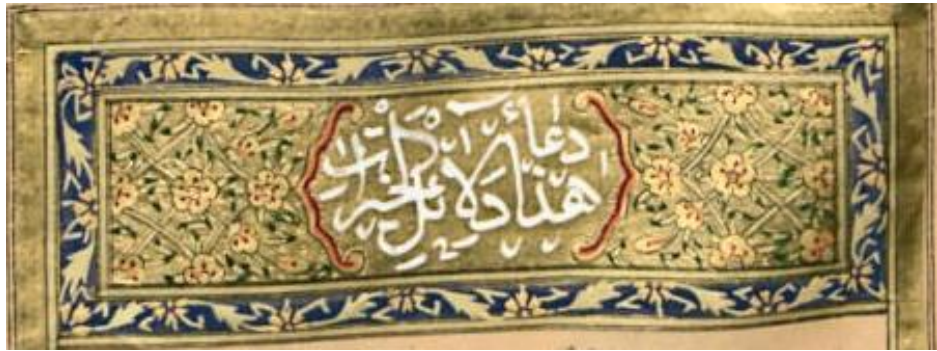 هذا دعاء دلائل الخيرات